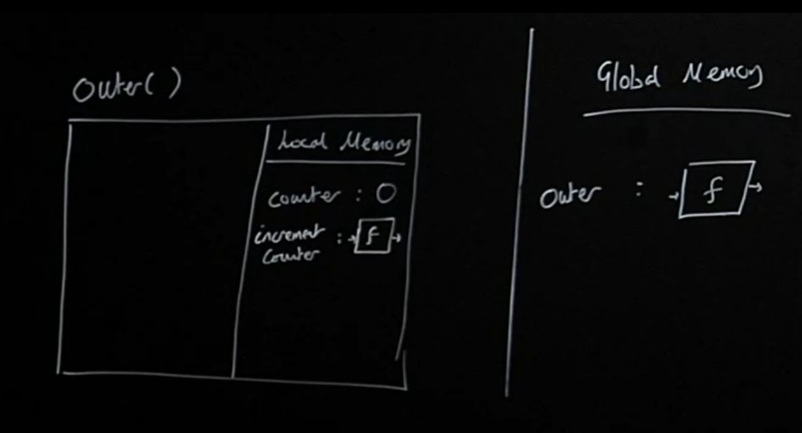 Outer( )
Local Memory
counter : 0
increment : f
Counter
Global Memory
Outer : f